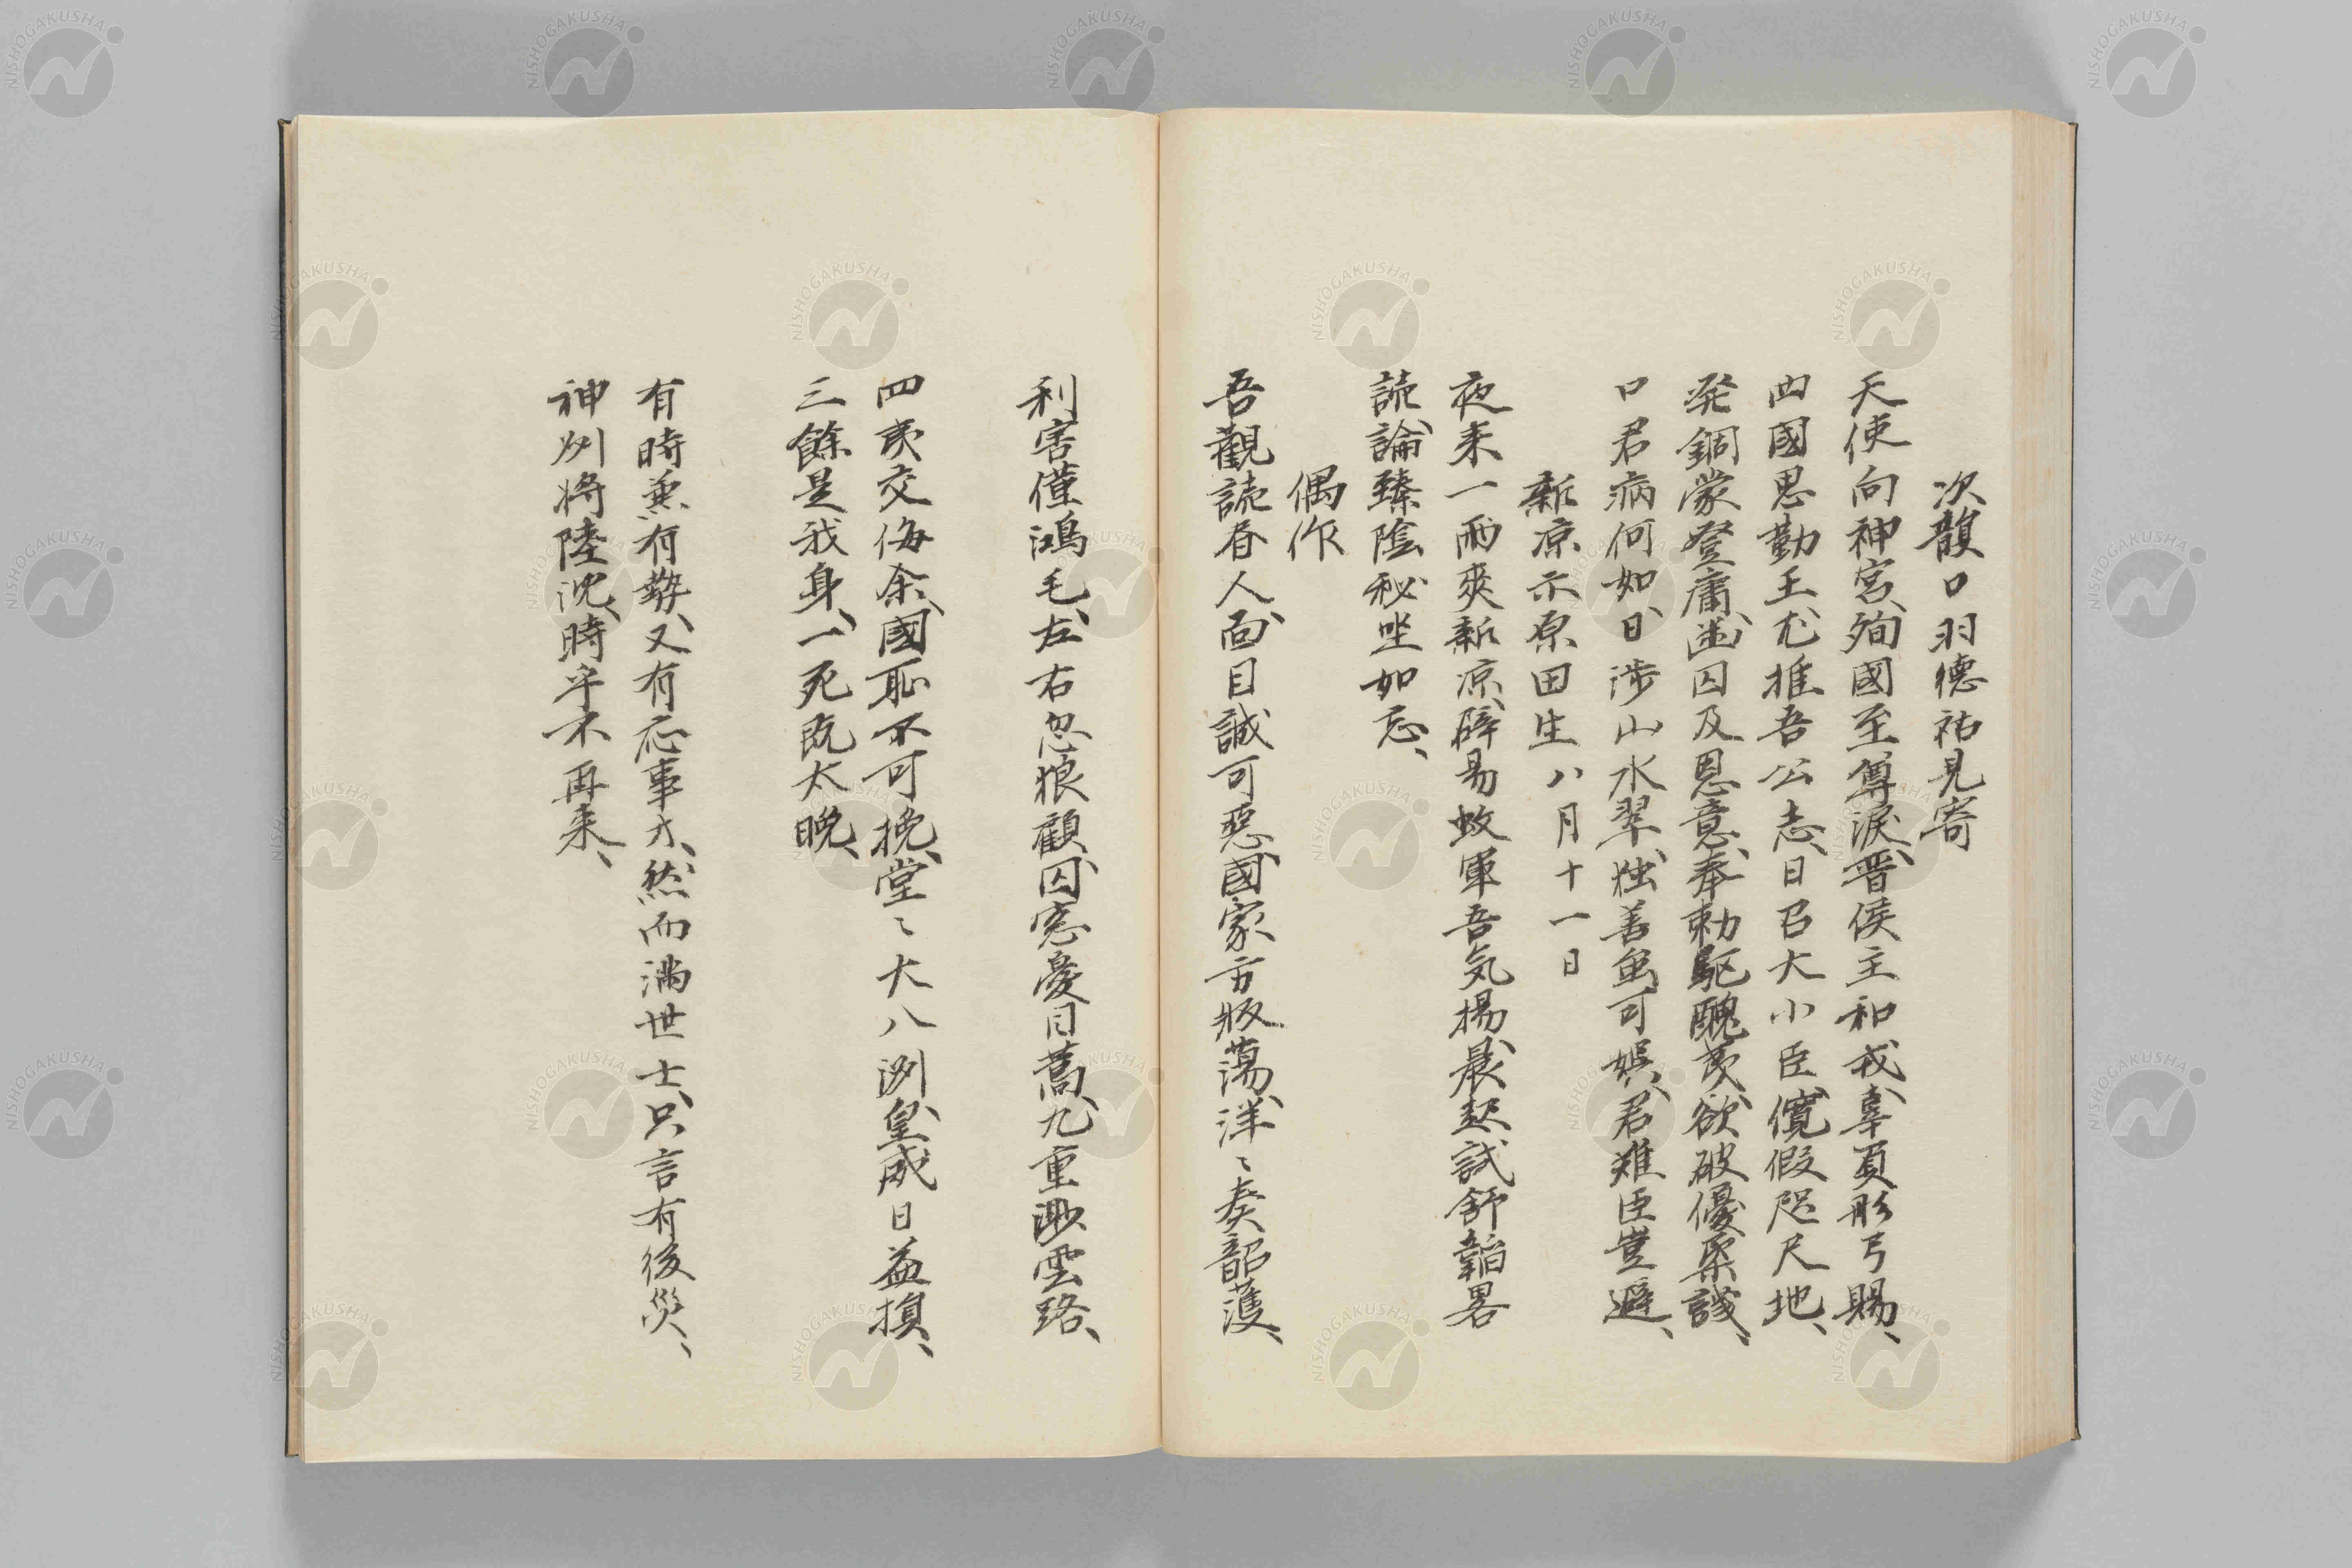 次韻口羽徳祐見寄
天使向神宮、殉國至尊淚、晋侯主和戎、辜負彤弓賜、
四國思勤王、尤推吾公志、日召大小臣、儻假咫尺地、
発錮蒙登庸、幽囚及恩意、奉勅駆醜夷、欲破優柔議、
口君病何如、日涉山水翠、独善雖可娯、君難臣豈避、
新凉示原田生 八月十一日
夜来一雨爽新凉、辟易蚊軍吾気揚、晨起試舒韜畧
読、論臻陰秘坐如忘、
偶作
吾觀読春人、面目誠可惡、國家方版蕩、洋〻奏韶頀、
利害僅鴻毛、左右忽狼顧、囚窓憂日蒿、九重渺雲路、
四夷交侮余、國恥不可挽、堂〻大八洲、皇威日益損、
三餘是我身、一死既太晩、
有時兼有勢、又有応事才、然而満世士、只言有後災、
神州将陸沈、時乎不再来、